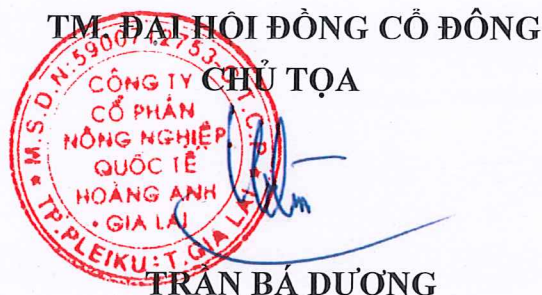 TM. ĐẠI HỘI ĐỒNG CỔ ĐÔNG
CHỦ TỌA
M.S.D.N:5900712753-C.T.C.P
CÔNG TY
CỔ PHẦN
NÔNG NGHIỆP
QUỐC TẾ
HOÀNG ANH
GIA LAI
TP.PLEIKU-T.GIA LAI
TRẦN BÁ DƯƠNG